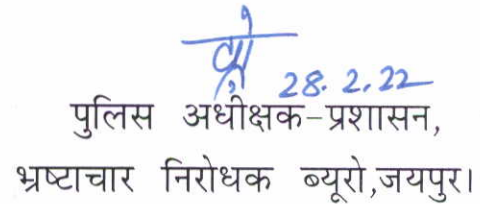 28.2.22
पुलिस अधीक्षक-प्रशासन,
भ्रष्टाचार निरोधक ब्यूरो,जयपुर।